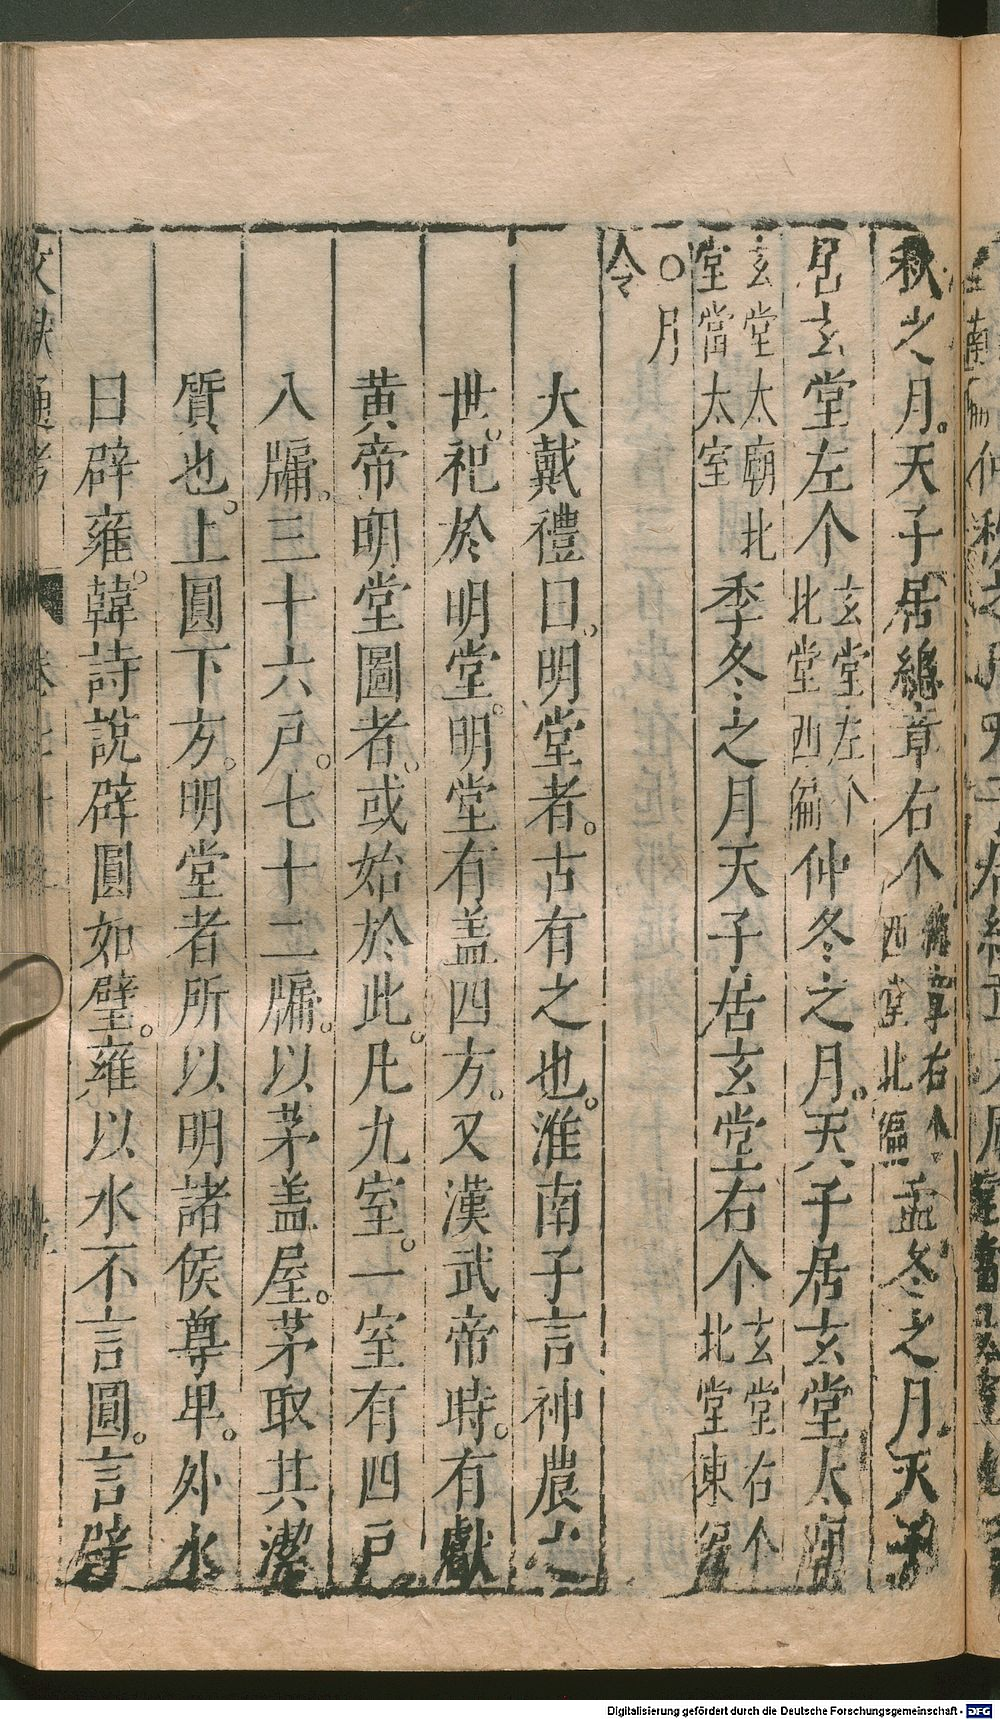 秋之月。天子居總章右个總章右个西堂北徧孟冬之月天子
居玄堂左个玄堂左个北堂西徧仲冬之月。天子居玄堂太廟
玄堂太廟北堂當太室季冬之月天子居玄堂右个玄堂右个北堂東徧
○月令
大戴禮曰。明堂者。古有之也。淮南子言神農之
世。祀於明堂。明堂有盖四方。又漢武帝時。有獻
黄帝明堂圖者。或始於此。凡九室。一室有四戶
八牖。三十六戶。七十二牖。以茅盖屋。茅取其潔
質也。上圓下方。明堂者所以明諸侯尊卑。外水
曰辟雍。韓詩說辟圓如璧。雍以水不言圓。言辟
文獻通考
Digitalisierung gefördert durch die Deutsche Forschungsgemeinschaft - DFG